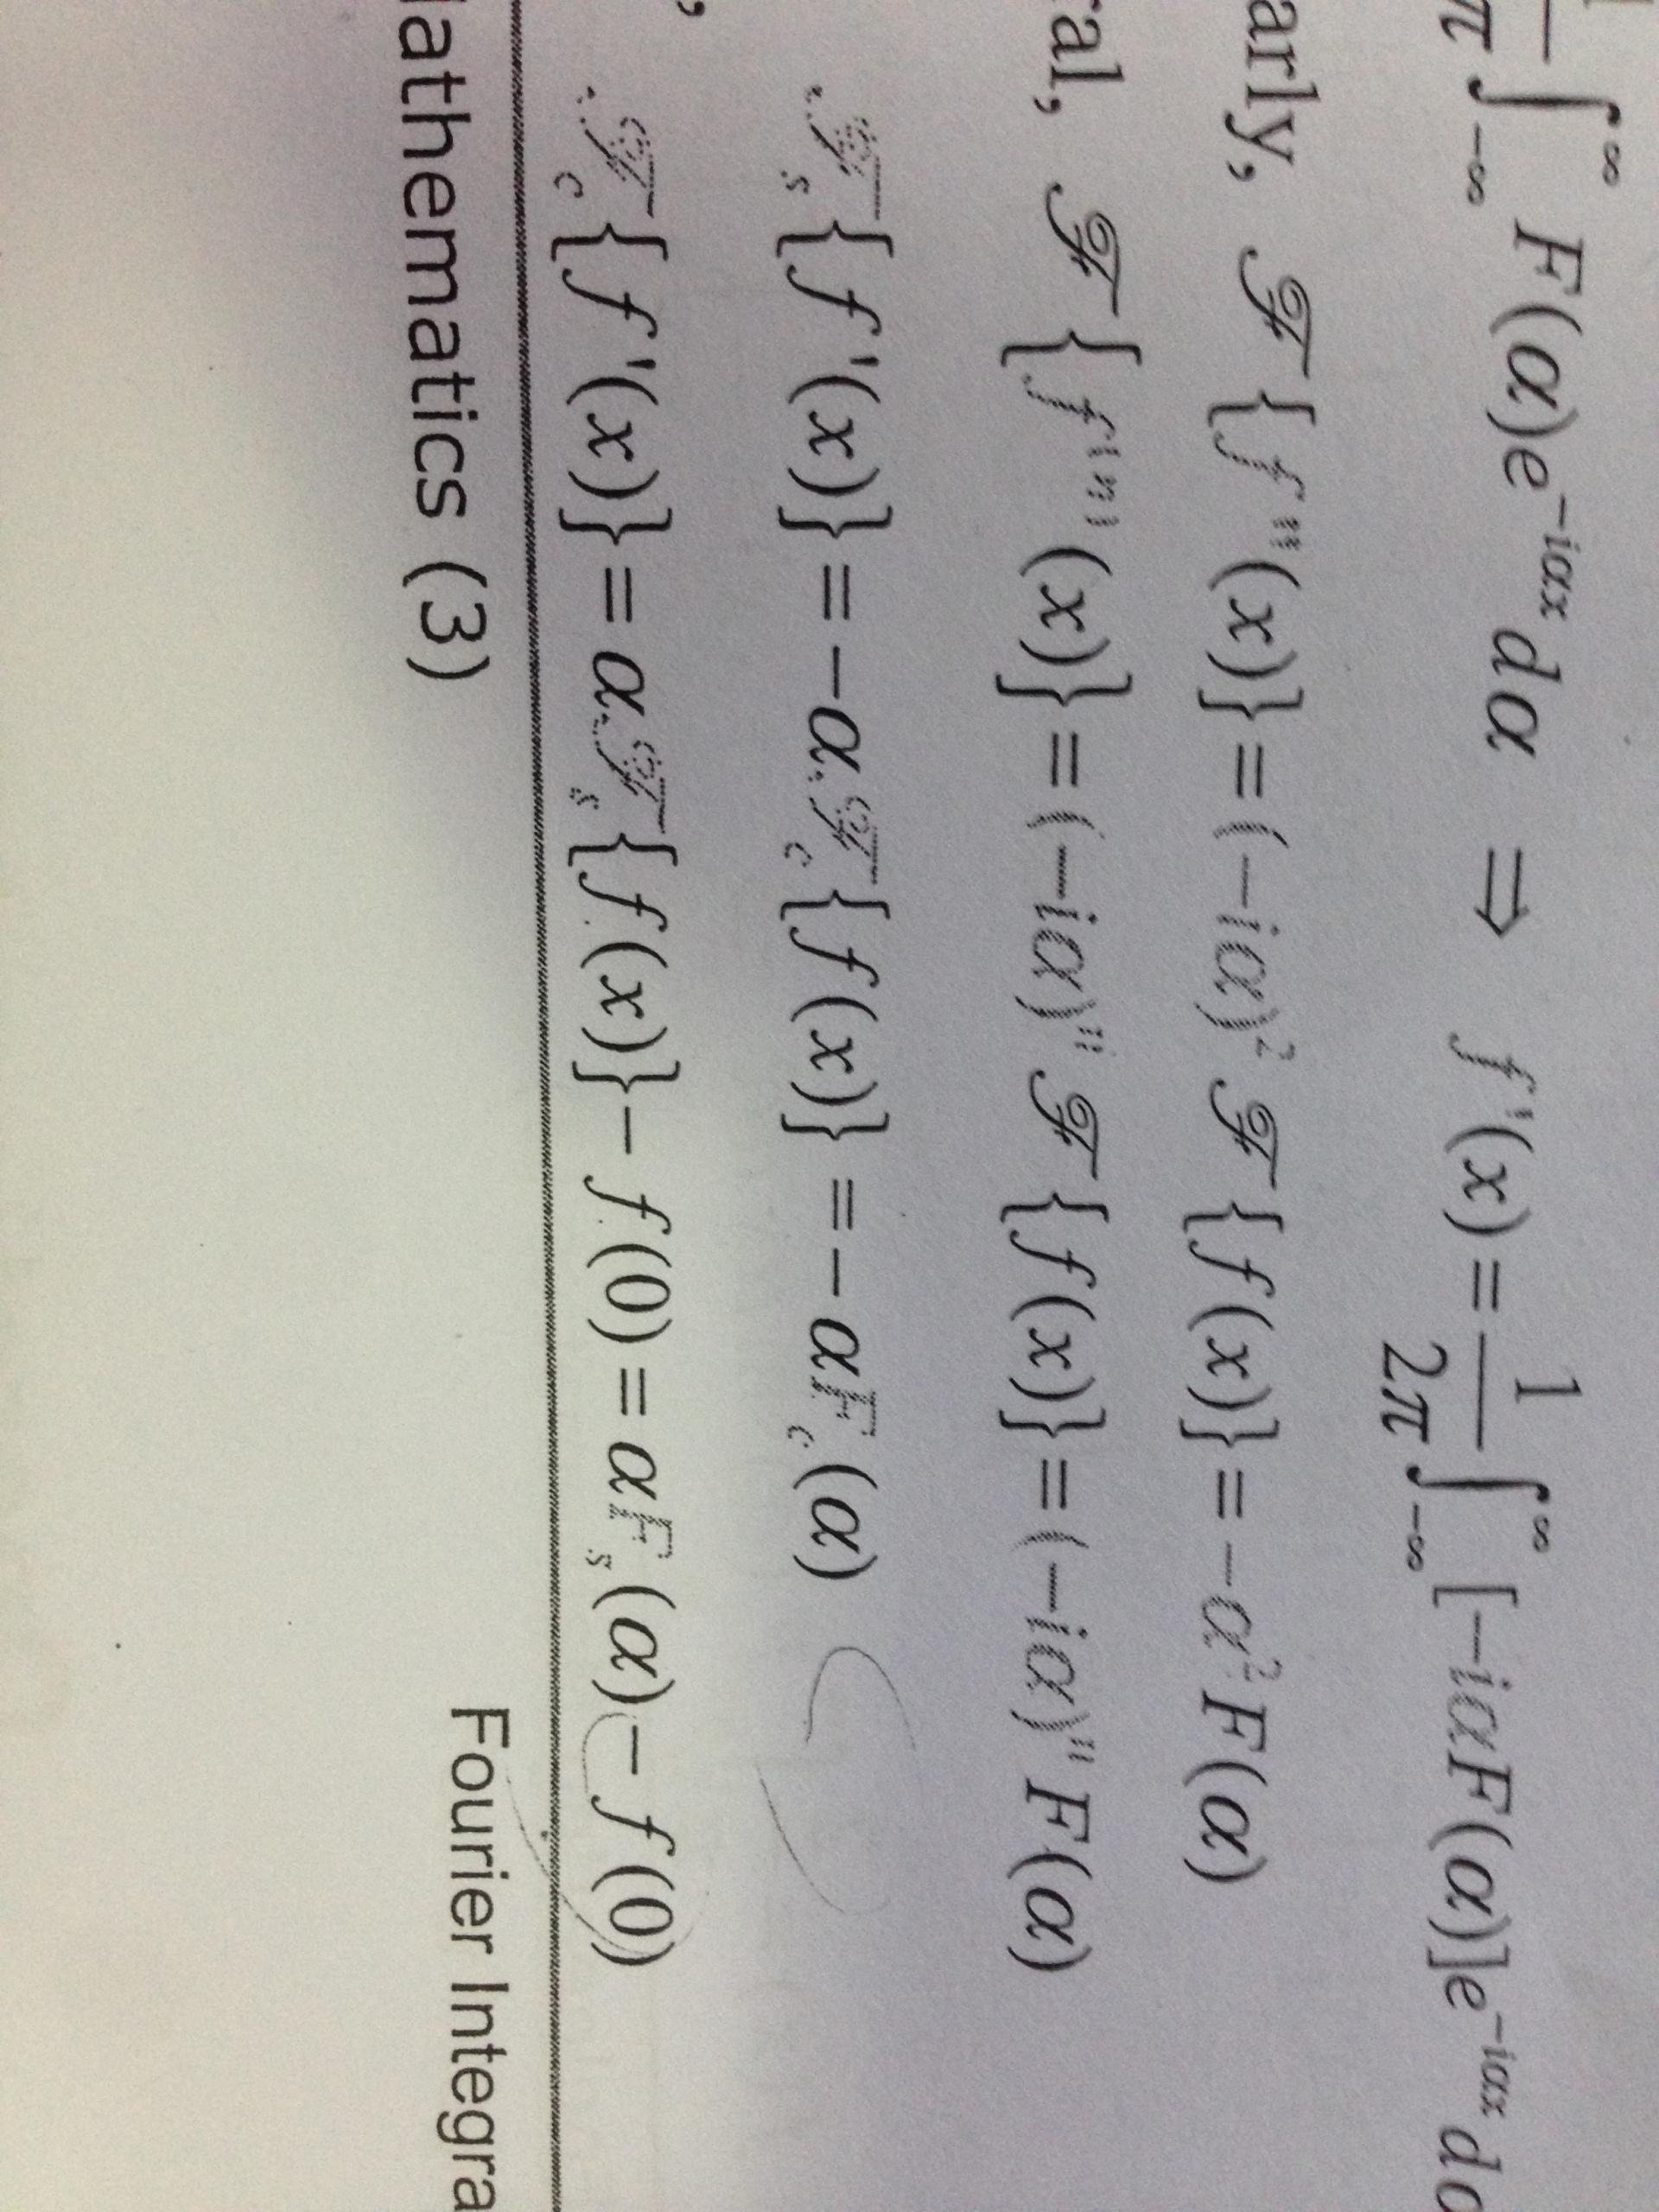 π ∫_{-∞}^{∞} F(α)e^{-iαx} dα ⇒ f'(x) = 1/2π ∫_{-∞}^{∞} [-iαF(α)]e^{-iαx} dα
arly, ℱ{f''(x)} = (-iα)² ℱ{f(x)} = -α²F(α)
ral, ℱ{f⁽ⁿ⁾(x)} = (-iα)ⁿ ℱ{f(x)} = (-iα)ⁿF(α)
,
ℱ_s{f'(x)} = -αℱ_c{f(x)} = -αF_c(α)
ℱ_c{f'(x)} = αℱ_s{f(x)} - f(0) = αF_s(α) - f(0)
athematics (3) Fourier Integra